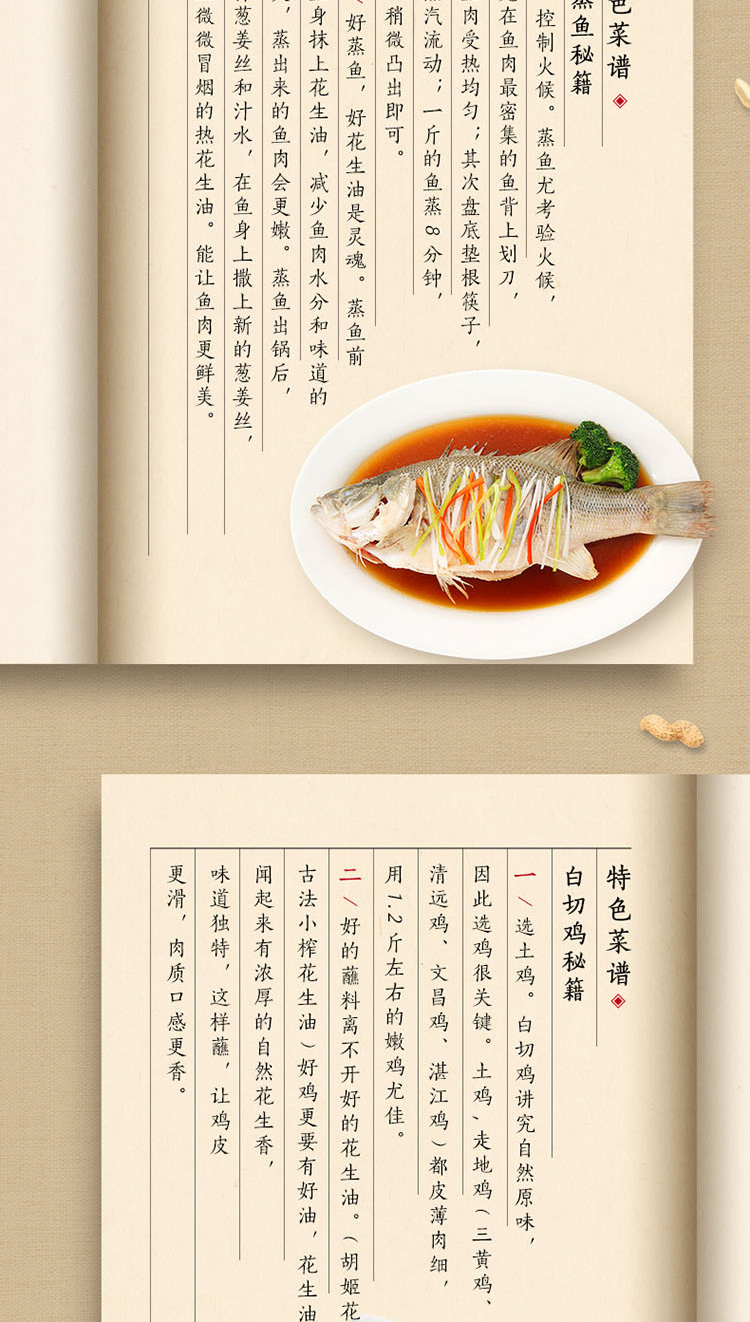 色菜谱
蒸鱼秘籍
控制火候。蒸鱼尤考验火候，
在鱼肉最密集的鱼背上划刀，
肉受热均匀；其次盘底垫根筷子，
蒸汽流动；一斤的鱼蒸8分钟，
稍微凸出即可。
好蒸鱼，好花生油是灵魂。蒸鱼前
身抹上花生油，减少鱼肉水分和味道的
，蒸出来的鱼肉会更嫩。蒸鱼出锅后，
葱姜丝和汁水，在鱼身上撒上新的葱姜丝，
微微冒烟的热花生油。能让鱼肉更鲜美。
特色菜谱
白切鸡秘籍
一/选土鸡。白切鸡讲究自然原味，
因此选鸡很关键。土鸡、走地鸡（三黄鸡、
清远鸡、文昌鸡、湛江鸡）都皮薄肉细，
用1.2斤左右的嫩鸡尤佳。
二/好的蘸料离不开好的花生油。（胡姬花
古法小榨花生油）好鸡更要有好油，花生油
闻起来有浓厚的自然花生香，
味道独特，这样蘸，让鸡皮
更滑，肉质口感更香。